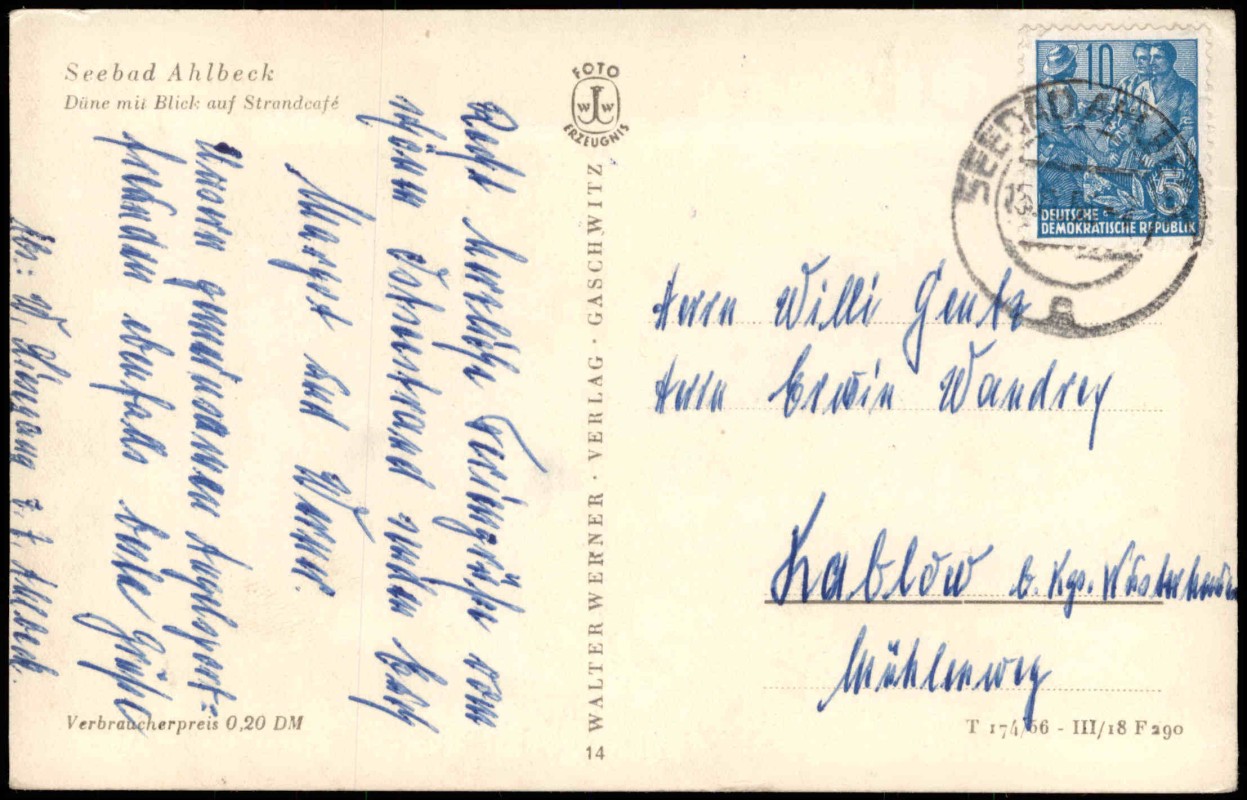 Seebad Ahlbeck
Düne mit Blick auf Strandcafé
FOTO
W W
ERZEUGNIS
10
5
DEUTSCHE
DEMOKRATISCHE REPUBLIK
SEEBAD AHLBECK
Recht herzliche Feriengrüße vom
schönen Ostseestrand senden Euch
Margot und Werner.
Unsern gemeinsamen
senden ebenfalls beste Grüße
Abs: W. z. Z. Ahlbeck
WALTER WERNER · VERLAG · GASCHWITZ
14
Herrn Willi Gentz
Herrn Erwin Wandrey
Kablow b. Kgs. Wusterhausen
Mühlenweg
Verbraucherpreis 0,20 DM
T 174/56 - III/18 F 290